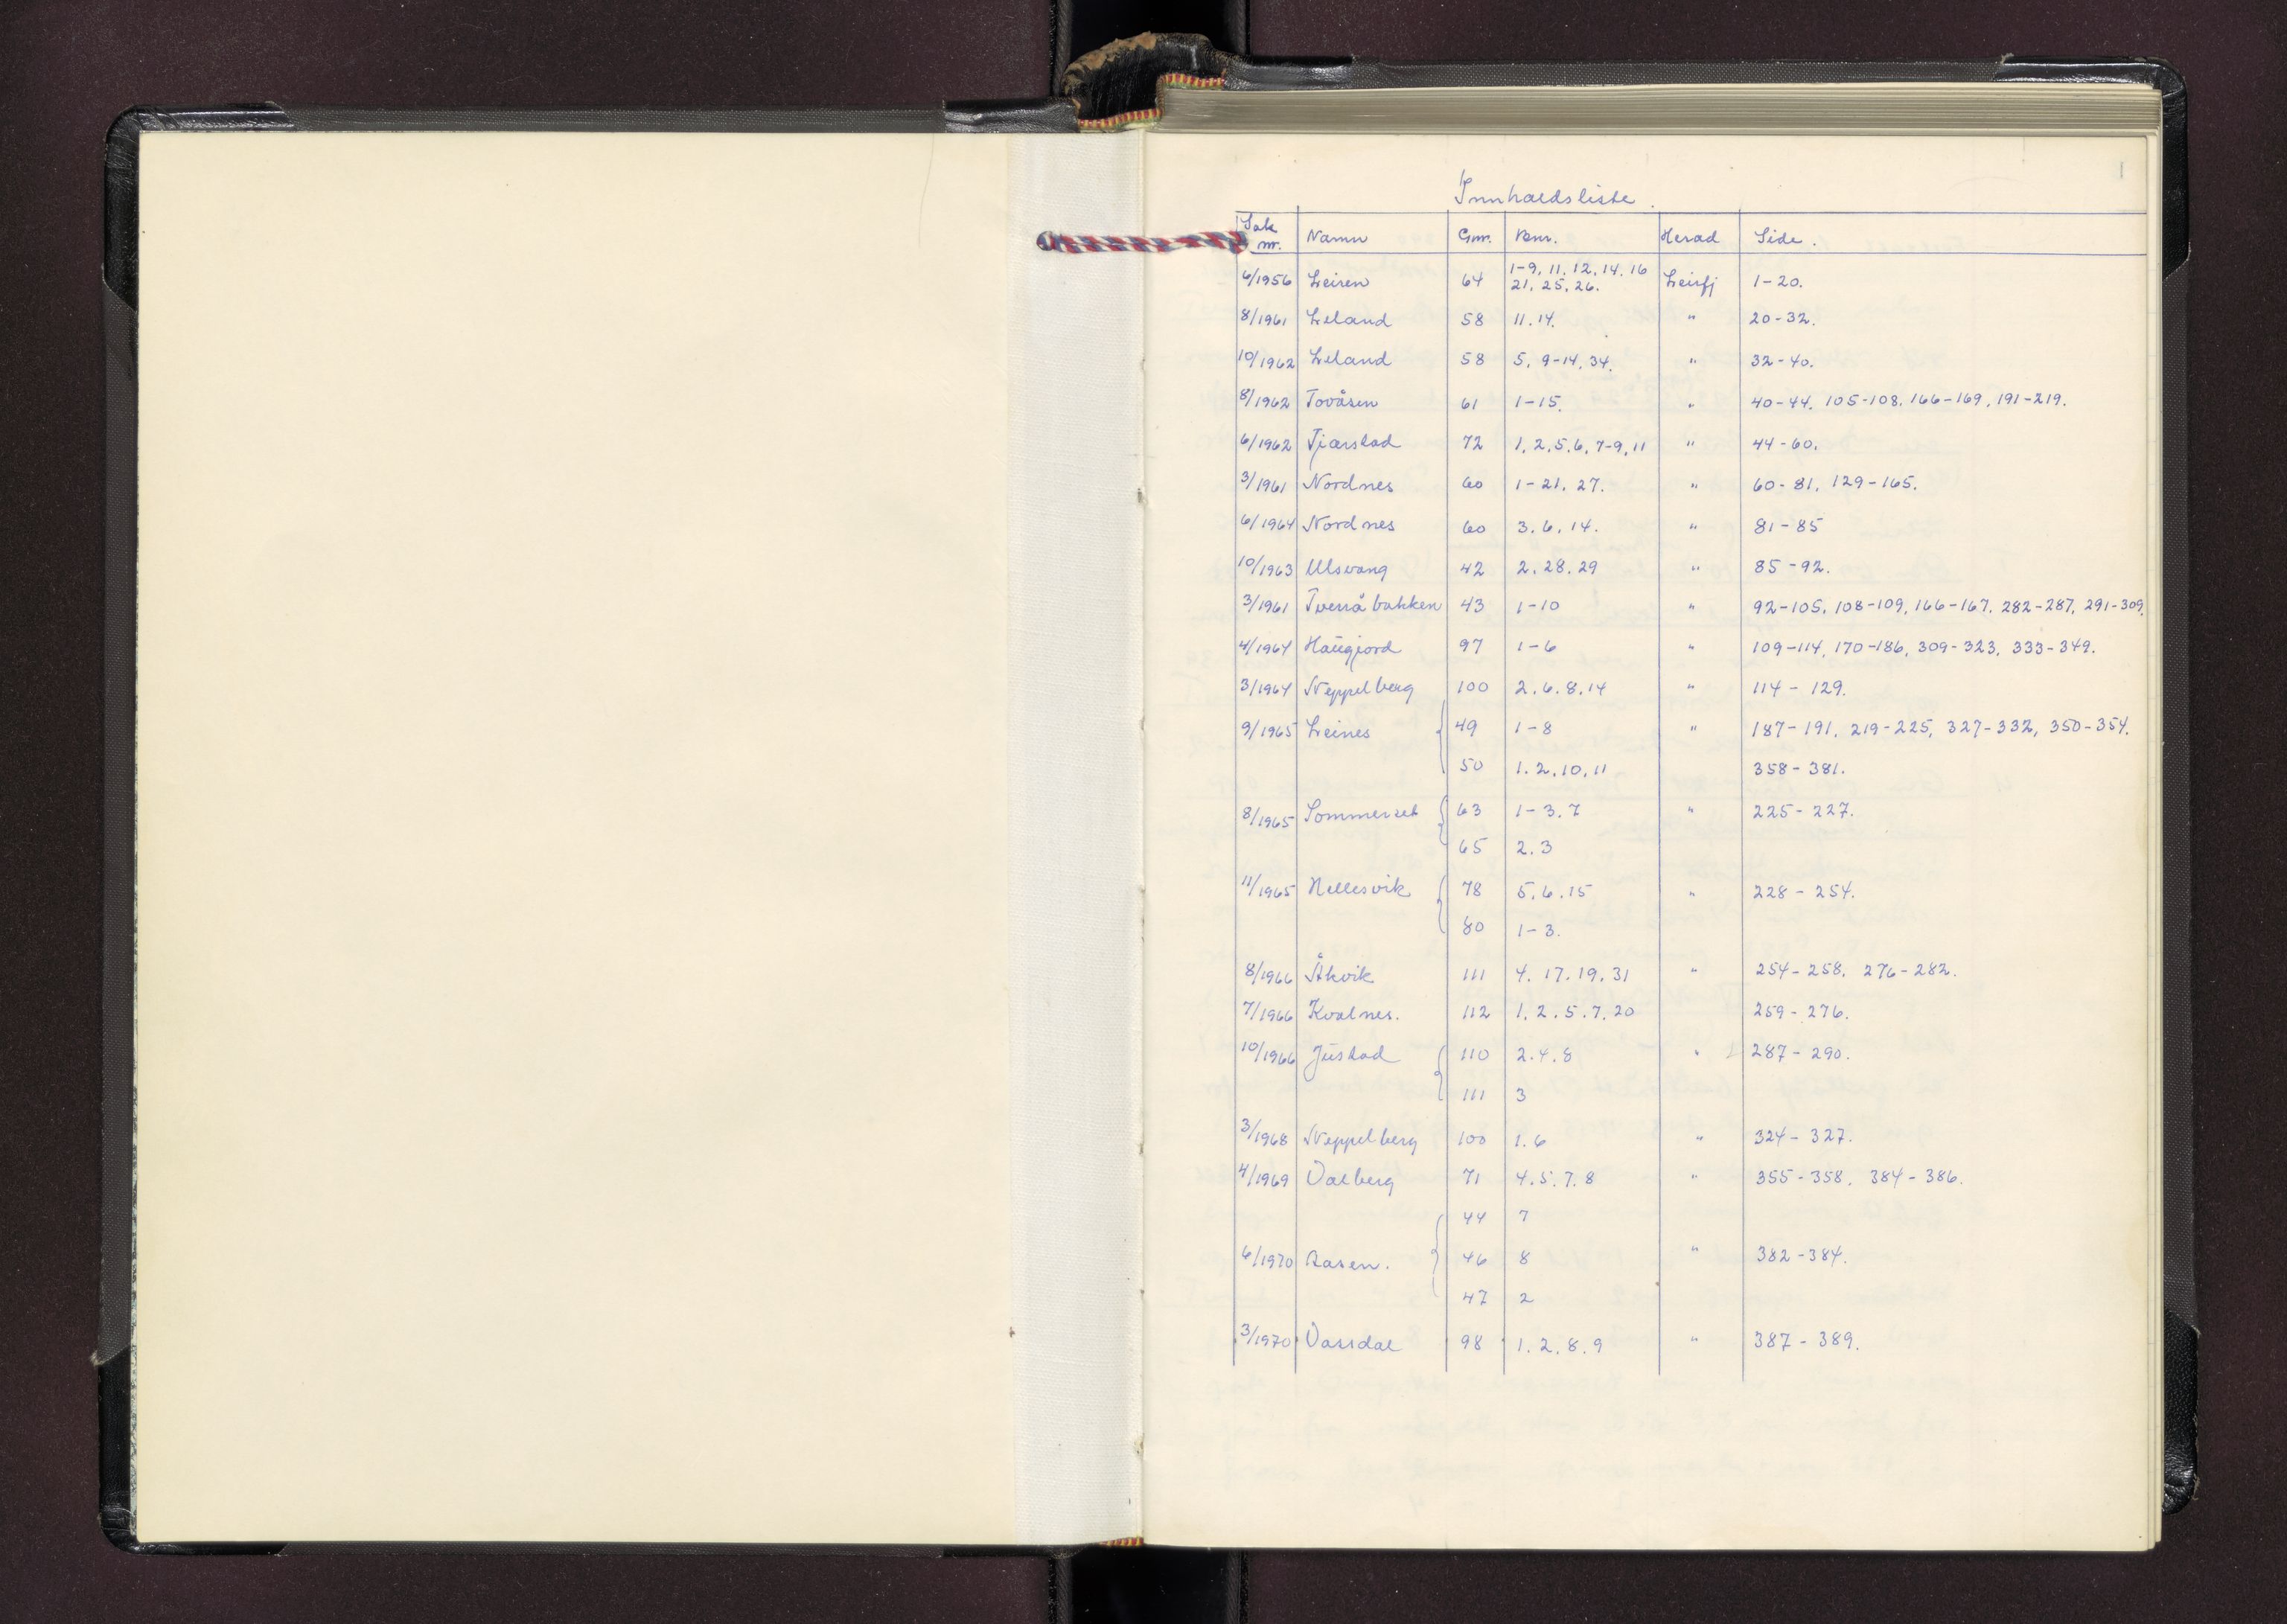 1
Innhaldsliste.
Sak nr. Namn Gnr. Bnr. Herad Side.
6/1956 Leiren 64 1-9, 11, 12, 14, 16 21, 25, 26. Leirfj 1-20.
8/1961 Leland 58 11. 14. " 20-32.
10/1962 Leland 58 5, 9-14, 34. " 32-40.
8/1962 Tovåsen 61 1-15. " 40-44, 105-108, 166-169, 191-219.
6/1962 Tjærstad 72 1, 2, 5, 6, 7-9, 11 " 44-60.
3/1961 Nordnes 60 1-21, 27. " 60-81, 129-165.
6/1964 Nordnes 60 3. 6. 14. " 81-85
10/1963 Ulsvang 42 2. 28. 29 " 85-92.
3/1961 Tverråbakken 43 1-10 " 92-105, 108-109, 166-167, 282-287, 291-309.
4/1964 Haugjord 97 1-6 " 109-114, 170-186, 309-323, 333-349.
3/1964 Neppelberg 100 2. 6. 8. 14 " 114-129.
9/1965 Leines { 49 1-8 " 187-191, 219-225, 327-332, 350-354.
50 1. 2, 10, 11 358-381.
8/1965 Sommerset { 63 1-3. 7 " 225-227.
65 2. 3
11/1965 Hellesvik { 78 5. 6. 15 " 228-254.
80 1-3.
8/1966 Åkvik 111 4. 17. 19. 31 " 254-258, 276-282.
7/1966 Kvalnes. 112 1. 2. 5. 7. 20 259-276.
10/1966 Justad { 110 2. 4. 8 " 287-290.
111 3
3/1968 Neppelberg 100 1. 6 " 324-327.
4/1969 Dalberg 71 4. 5. 7. 8 " 355-358, 384-386.
44 7
6/1970 Aasen. { 46 8 " 382-384.
47 2
3/1970 Dassdal 98 1. 2. 8. 9 " 387-389.